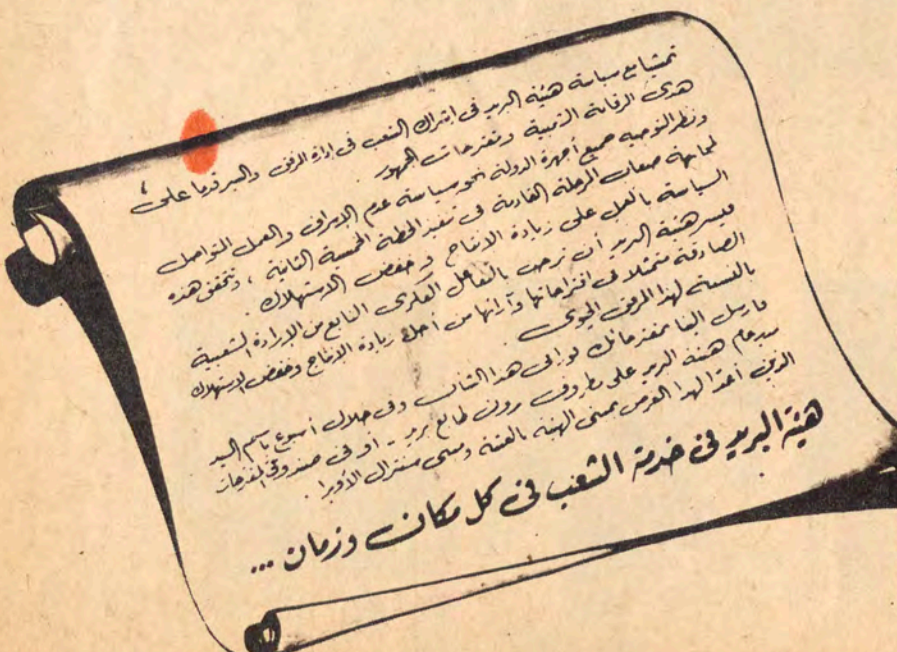 تمشيا مع سياسة هيئة البريد فى اشراك الشعب فى إدارة المرفق والسير قدما على
هدى الرقابة الشعبية ومقترحات الجمهور.
ونظرا لتوجيه جميع أجهزة الدولة نحو سياسة عدم الإسراف والعمل المتواصل
لمجابهة صعاب المرحلة القادمة فى تنفيذ الخطة الخمسية الثانية ، وتحقق هذه
السياسة بالعمل على زيادة الانتاج وخفض الاستهلاك .
فيسر هيئة البريد أن ترحب بالتفاعل الفكرى النابع من الإرادة الشعبية
الصادقة متمثلا فى اقتراحاتها وآرائها من أجل زيادة الإنتاج وخفض الاستهلاك
بالنسبة لهذا المرفق الحيوى
فارسل الينا مقترحاتك فى هذا الشأن وفى خلال أسبوع باسم السيد
مدير عام هيئة البريد على مظروف بدون طابع بريد - أو فى صندوق المقترحات
الذى أعد لهذا الغرض بمبنى الهيئة بالعتبة ومبنى سنترال الأوبرا .
هيئة البريد فى خدمة الشعب فى كل مكان وزمان ...